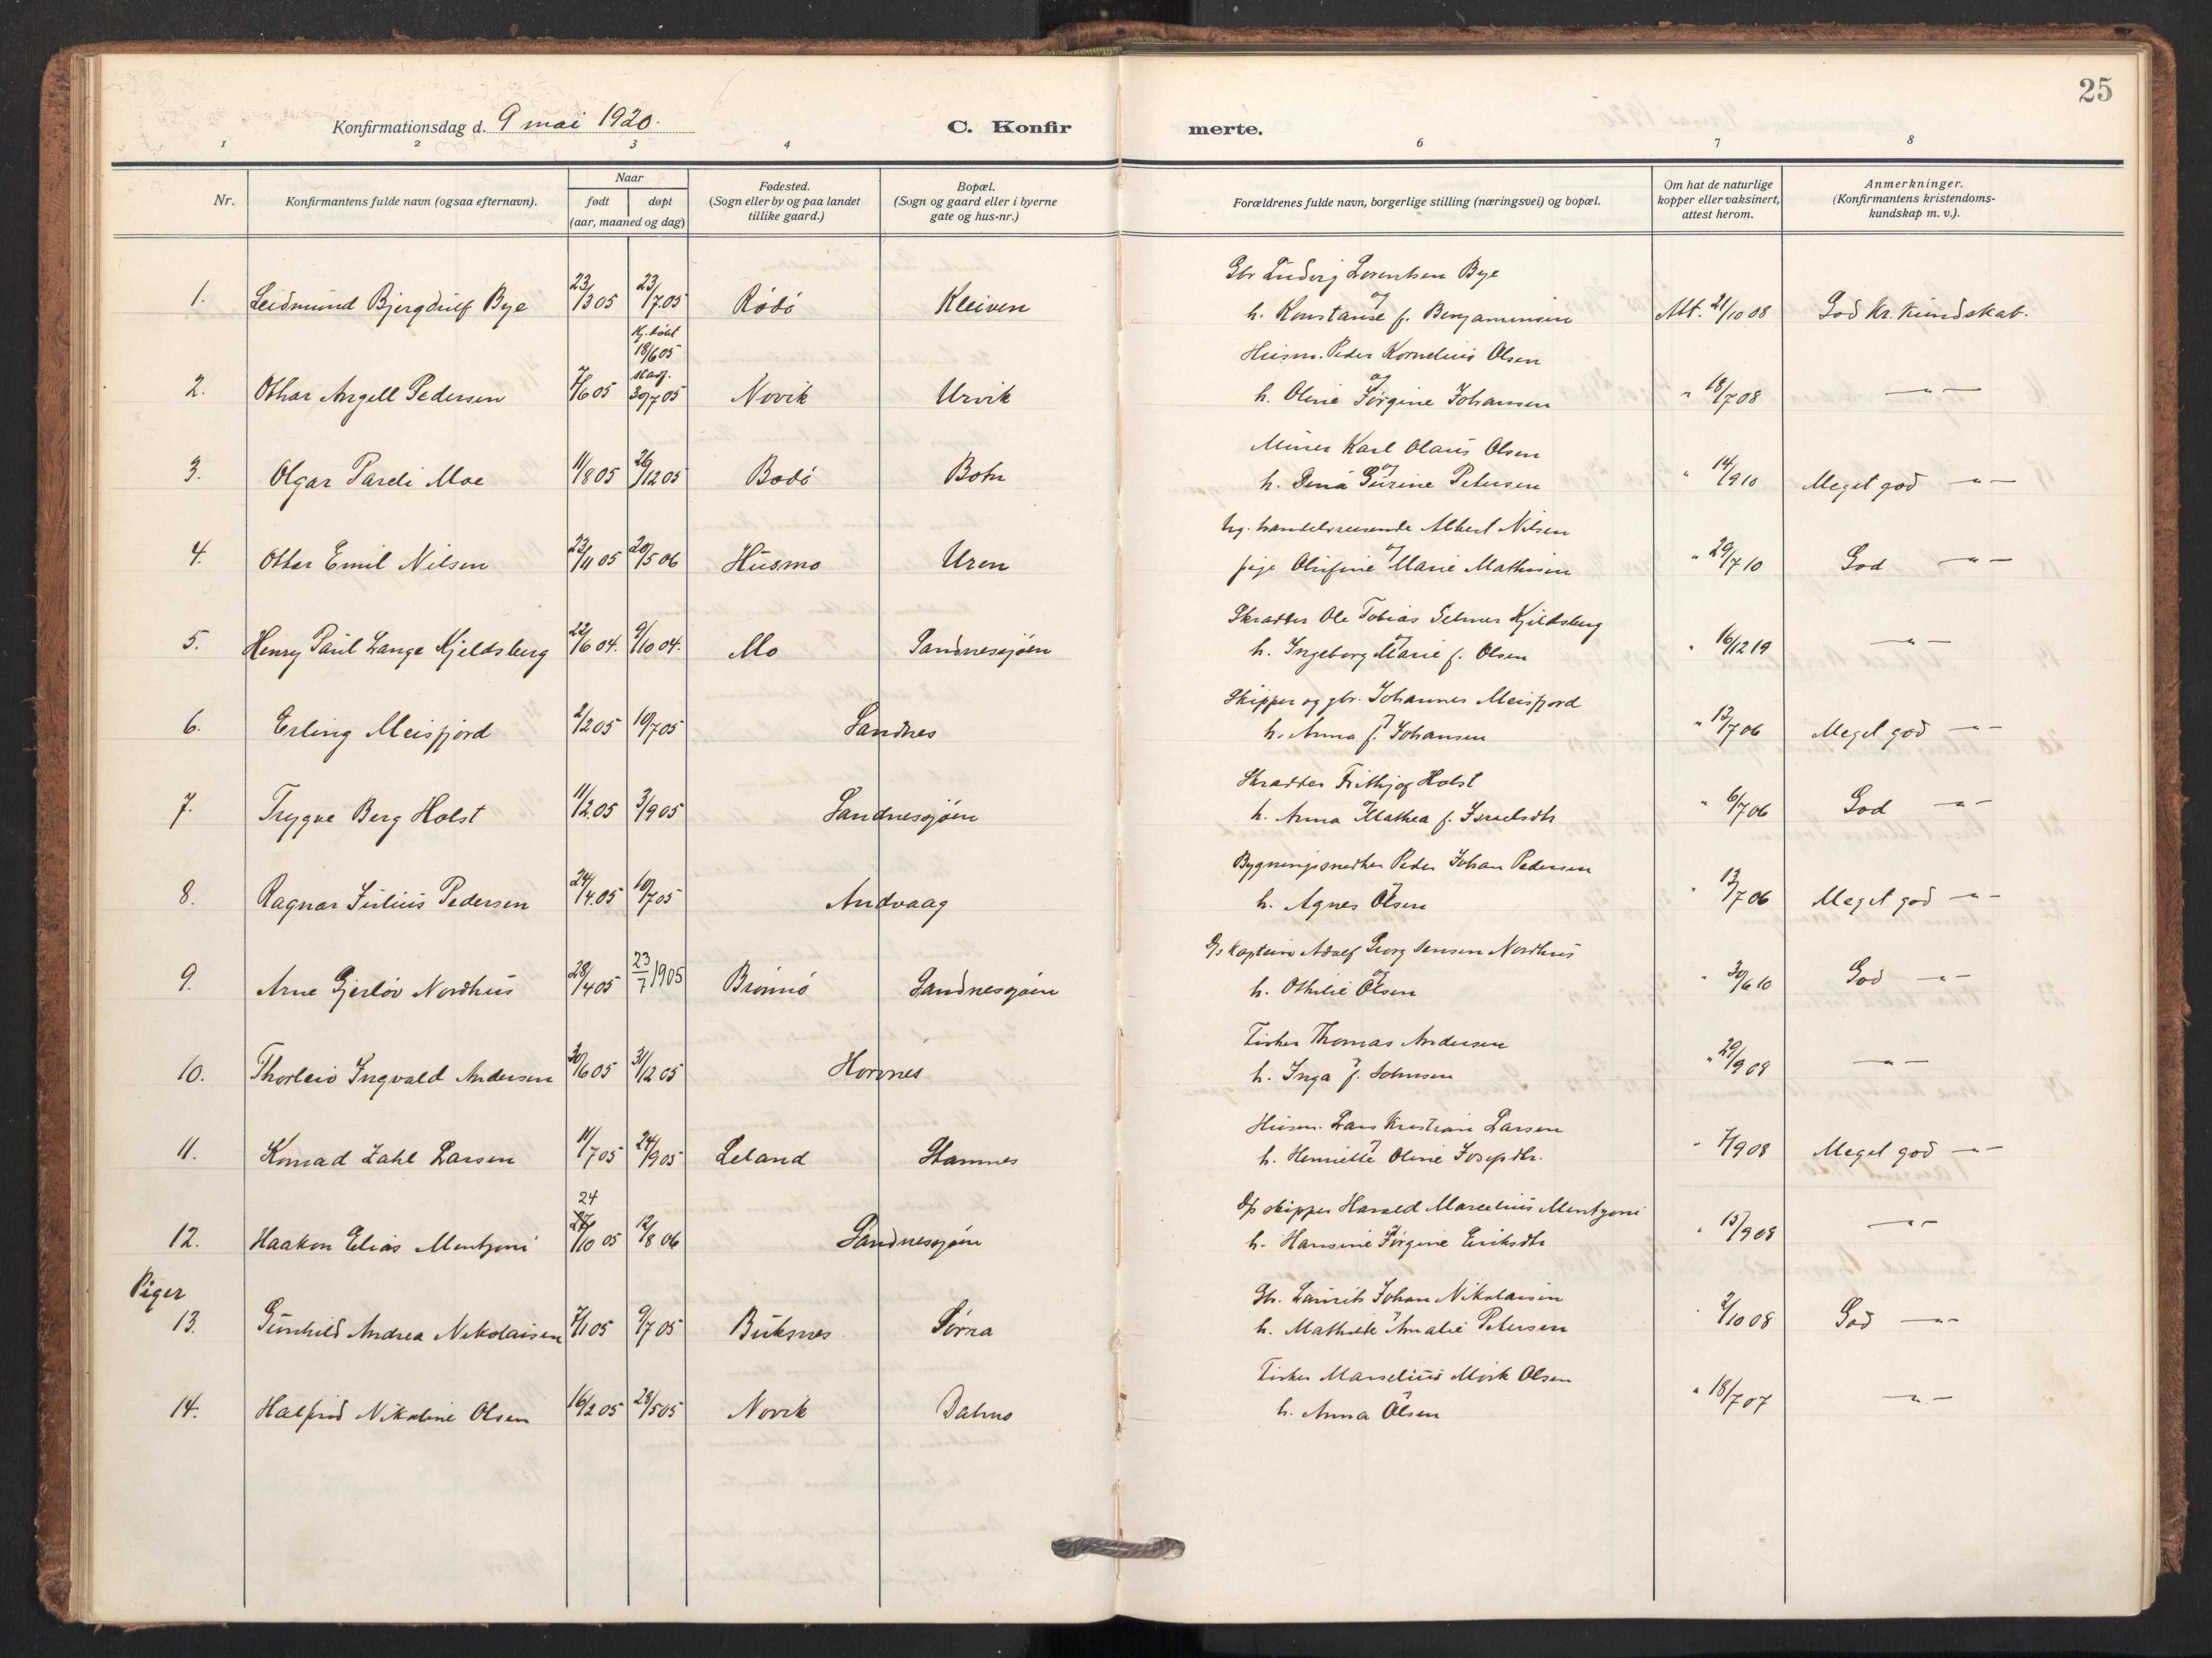 25
Konfirmationsdag d. 9 mai 1920. C. Konfirmerte.
1 2 3 4 6 7 8
Nr. Konfirmantens fulde navn (ogsaa efternavn). Naar født døpt (aar, maaned og dag) Fødested. (Sogn eller by og paa landet tillike gaard.) Bopæl. (Sogn og gaard eller i byerne gate og hus-nr.) Forældrenes fulde navn, borgerlige stilling (næringsvei) og bopæl. Om hat de naturlige kopper eller vaksinert, attest herom. Anmerkninger. (Konfirmantens kristendomskundskap m. v.).
Gbr Ludvig Lorentsen Bye
1. Leidmund Bjergdulf Bye 23/3 05 23/7 05 Rödö Kleiven og h. Konstanse f. Benjaminsen Att. 21/10 08 God kr. kundskab.
Hj. döbt 18/6 05
Husm. Peder Kornelius Olsen
stadf.
2. Othar Angell Pedersen 7/6 05 30/7 05 Novik Urvik og h. Oline Jörgine Johansen " 18/7 08 — " —
Miner Karl Olaus Olsen
3. Olgar Pareli Moe 11/8 05 26/12 05 Bodö Botn og h. Dina Gurine Petersen " 14/9 10 Meget god — " —
Ug. handelsreisende Albert Nilsen
4. Ottar Emil Nilsen 23/11 05 20/5 06 Husmo Uren og pige Olufine Marie Mathisen " 29/7 10 God — " —
Skrædder Ole Tobias Selmer Kjeldsberg
5. Henry Paul Lange Kjeldsberg 22/6 04. 9/10 04. Mo Sandnessjöen og h. Ingeborg Marie f. Olsen " 16/12 19 — " —
Skipper og gbr. Johannes Meisfjord
6. Erling Meisfjord 2/2 05 10/7 05 Sandnes og h. Anna f. Johansen " 13/7 06 Meget god — " —
Skrædder Frithjof Holst
7. Trygve Berg Holst 11/2.05 3/9 05 Sandnessjöen og h. Anna Mathea f. Israelsdtr " 6/7 06 God — " —
Bygningssnedker Peder Johan Pedersen
8. Ragnar Julius Pedersen 24/4.05 10/7 05 Andvaag og h. Agnes Olsen " 13/7 06 Meget god — " —
D/s Kaptein Adolf Georg Jensen Nordhus
9. Arne Gjerlöv Nordhus 28/4 05 23/7 1905 Brönnö Sandnessjöen og h. Othilie Olsen " 30/6 10 God — " —
Fisker Thomas Andersen
10. Thorleiv Ingvald Andersen 30/6 05 31/12 05 Horvnes og h. Inga f. Johnsen " 29/9 09 — " —
Husm. Lars Kristian Larsen
11. Konrad Zahl Larsen 11/7 05 24/9 05 Leland Stamnes og h. Henriette Oline Josepdtr. " 7/9 08 Meget god — " —
24
D/s skipper Harald Marcelius Mentzoni
12. Haakon Elias Mentzoni 27/10 05 12/8 06 Sandnessjöen og h. Hansine Jörgine Eriksdtr " 15/9 08 — " —
Piger
Gbr. Laurits Johan Nikolaisen
13. Gunhild Andrea Nikolaisen 7/1 05 9/7 05 Buksnes Sörra og h. Mathilde Amalie Petersen " 2/10 08 God — " —
Fisker Marselius Mörk Olsen
14. Halfrid Nikoline Olsen 16/2 05 28/5 05 Novik Dalmo og h. Anna Olsen " 18/7 07 — " —